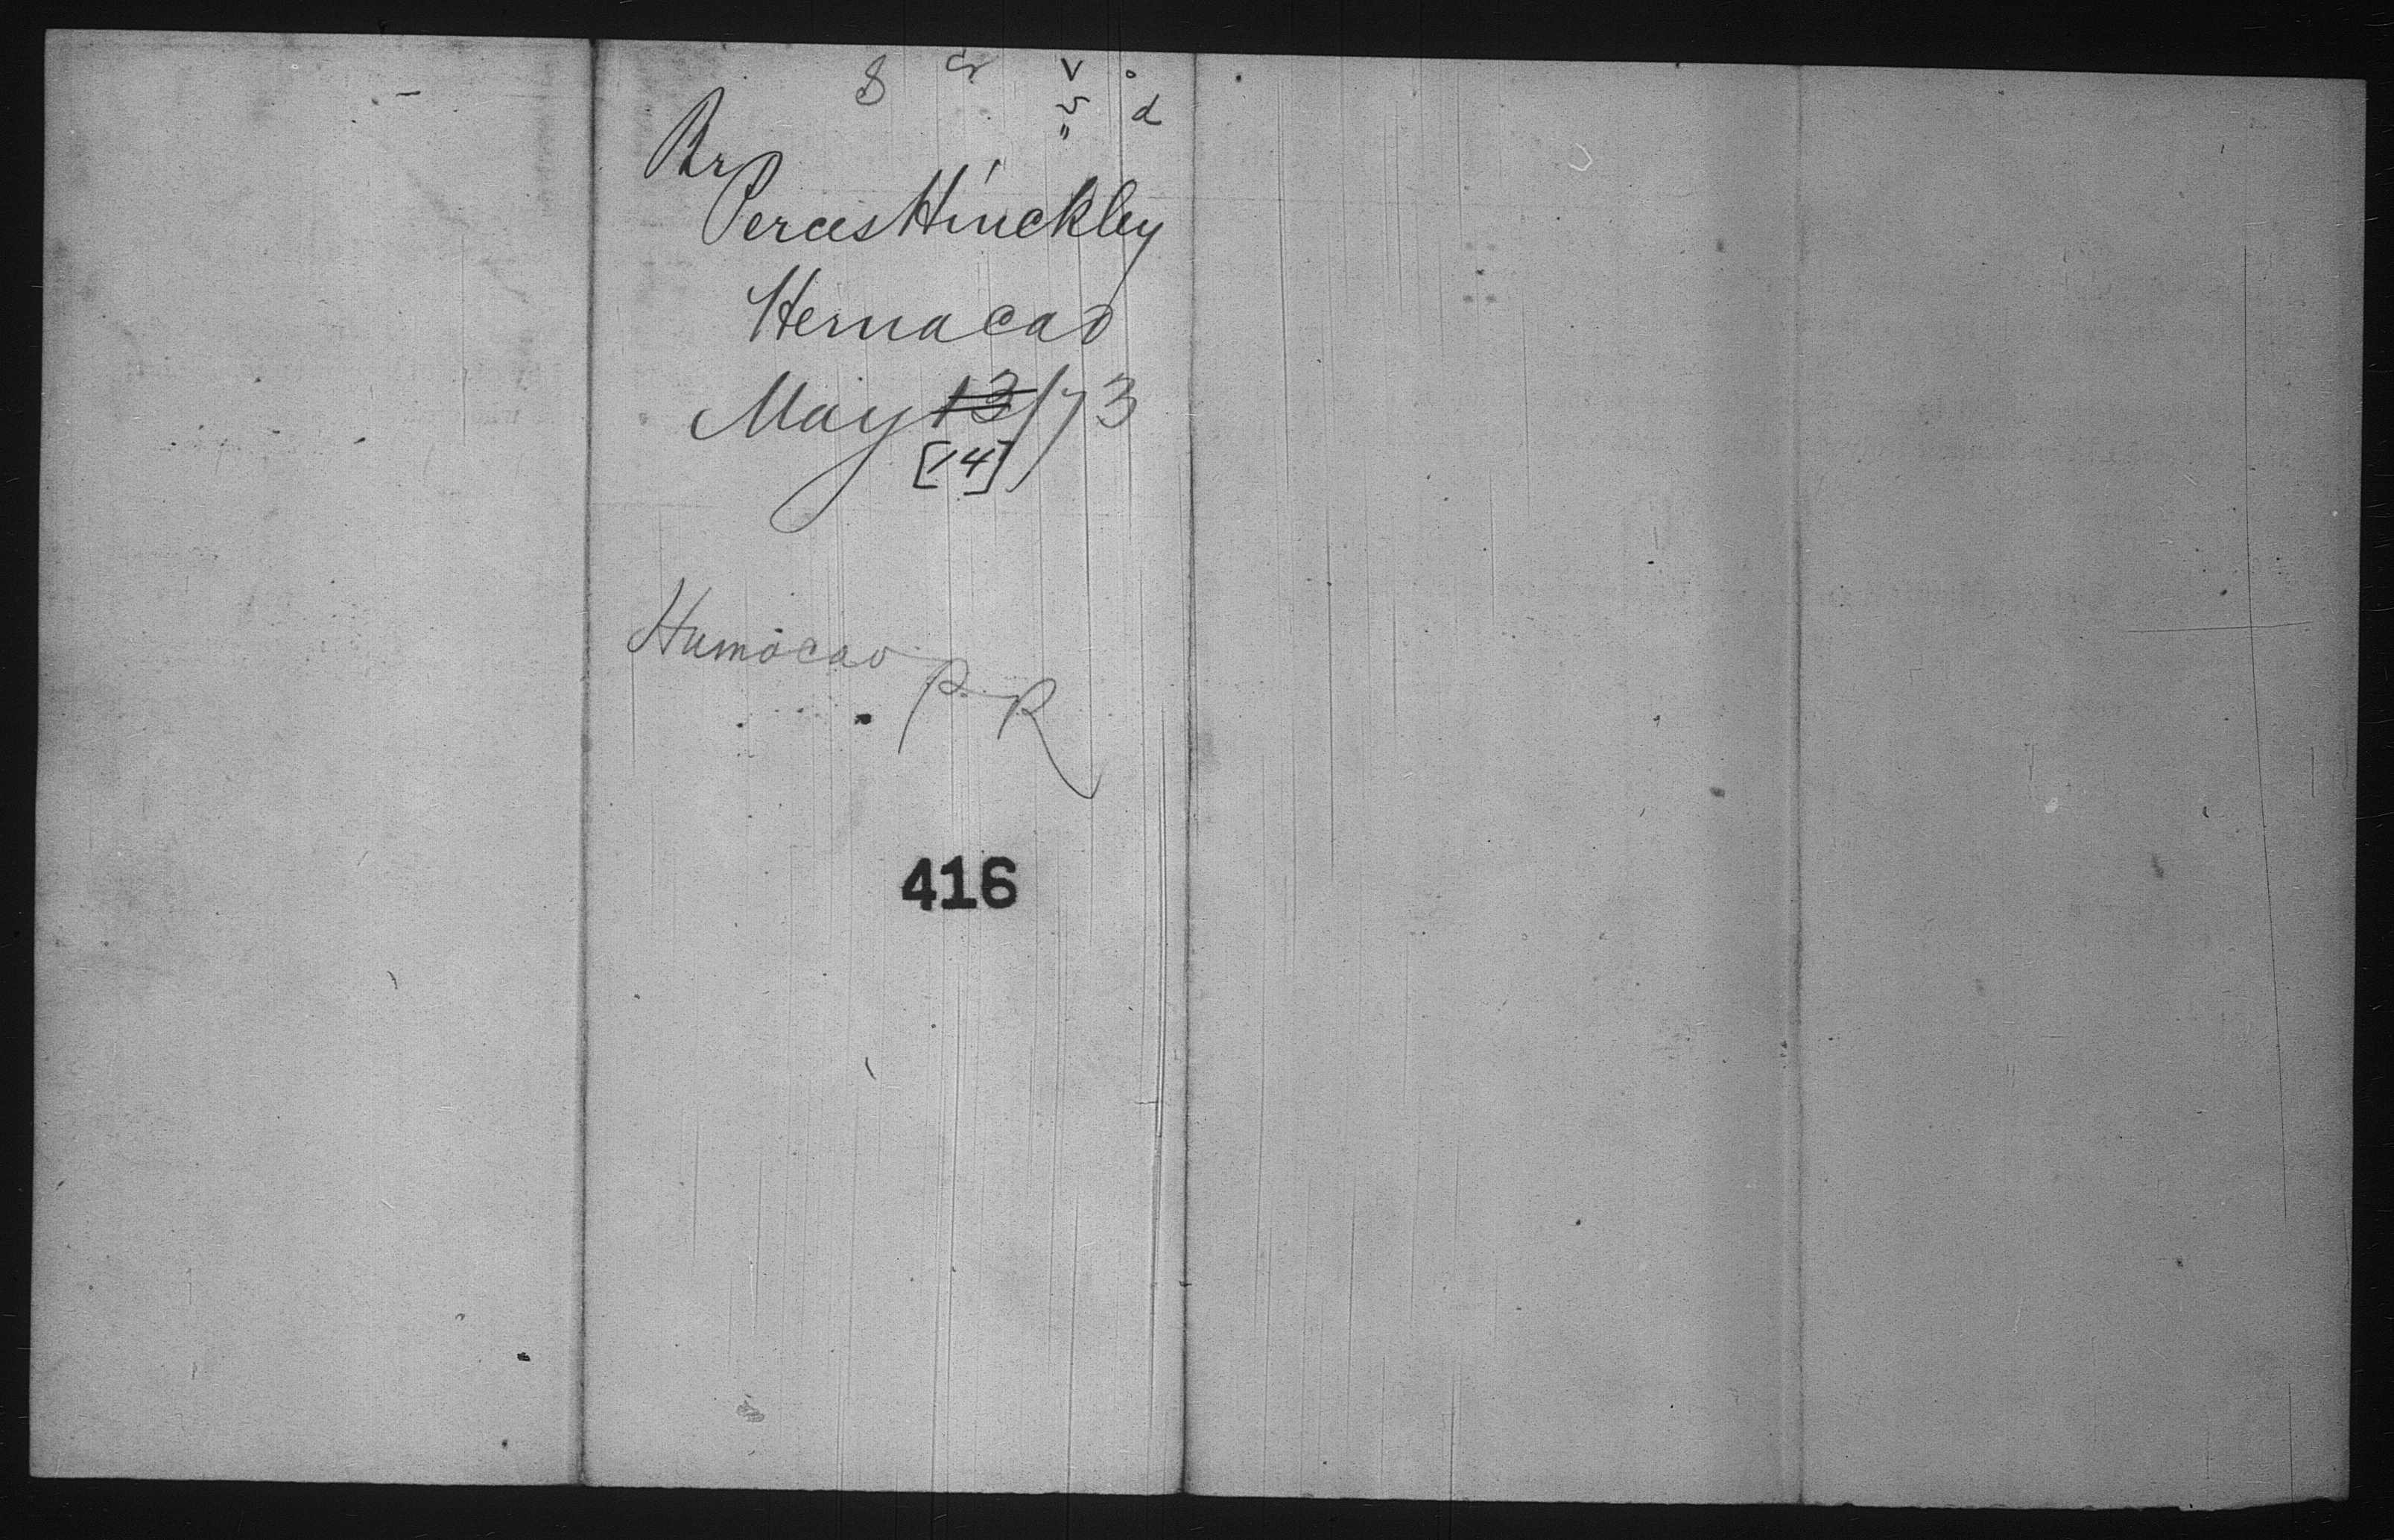 8 cr v o
v d
"
Br
Perces Hinckley
Hernacao
May 13/73
[14]
Humacao
P. R
416